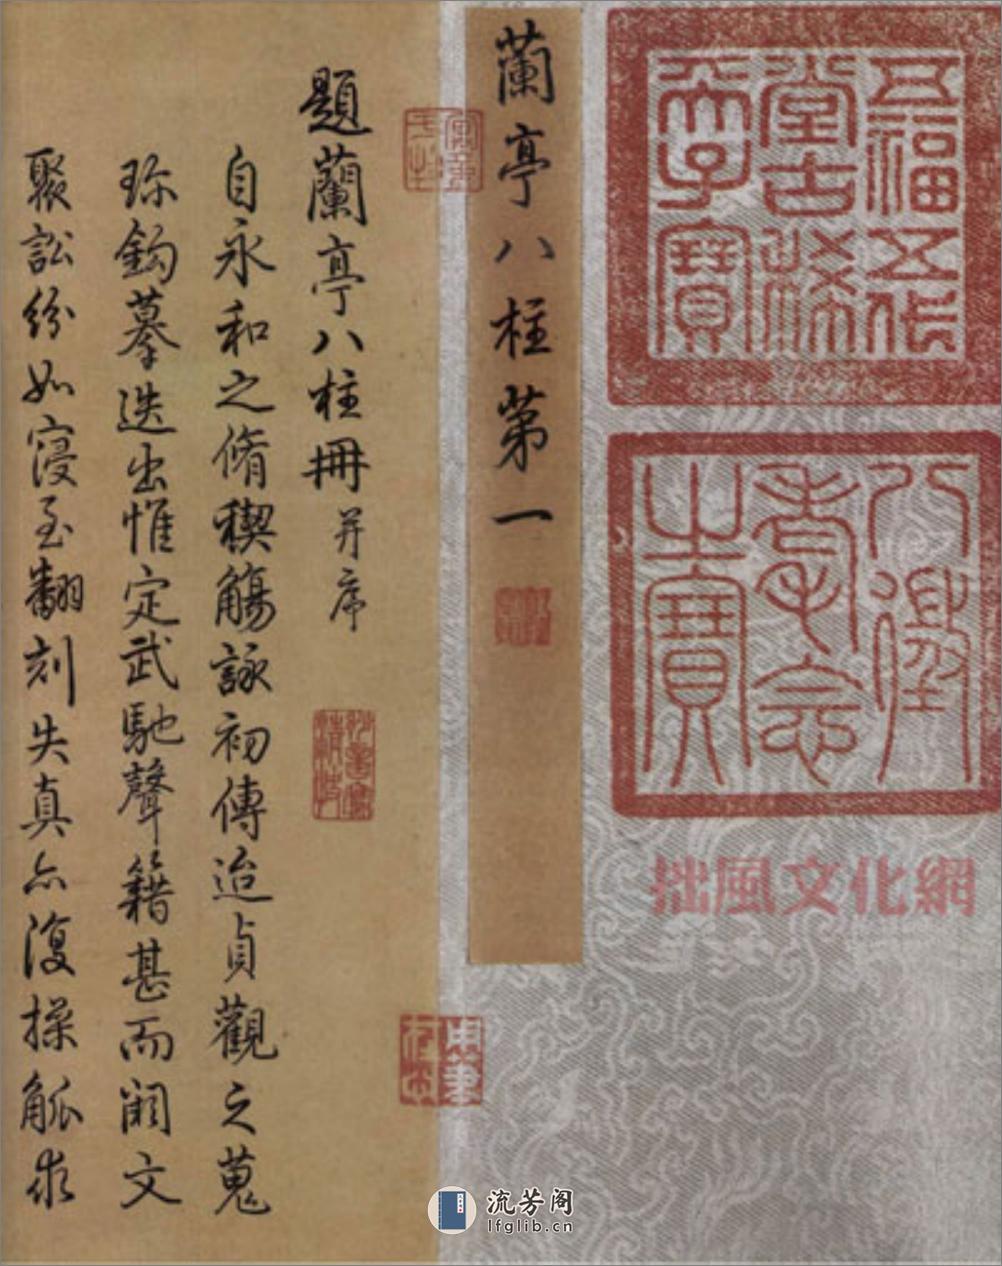 五福五代
堂古稀
天子寶
八徵
耄念
之寶
拙風文化網
蘭亭八柱第一
題蘭亭八柱冊并序
自永和之脩稧觴詠初傳迨貞觀之蒐
珎鈎摹迭出惟定武馳聲籍甚而闕文
聚訟紛如寖至翻刻失真亦復操觚求
流芳阁
lfglib.cn